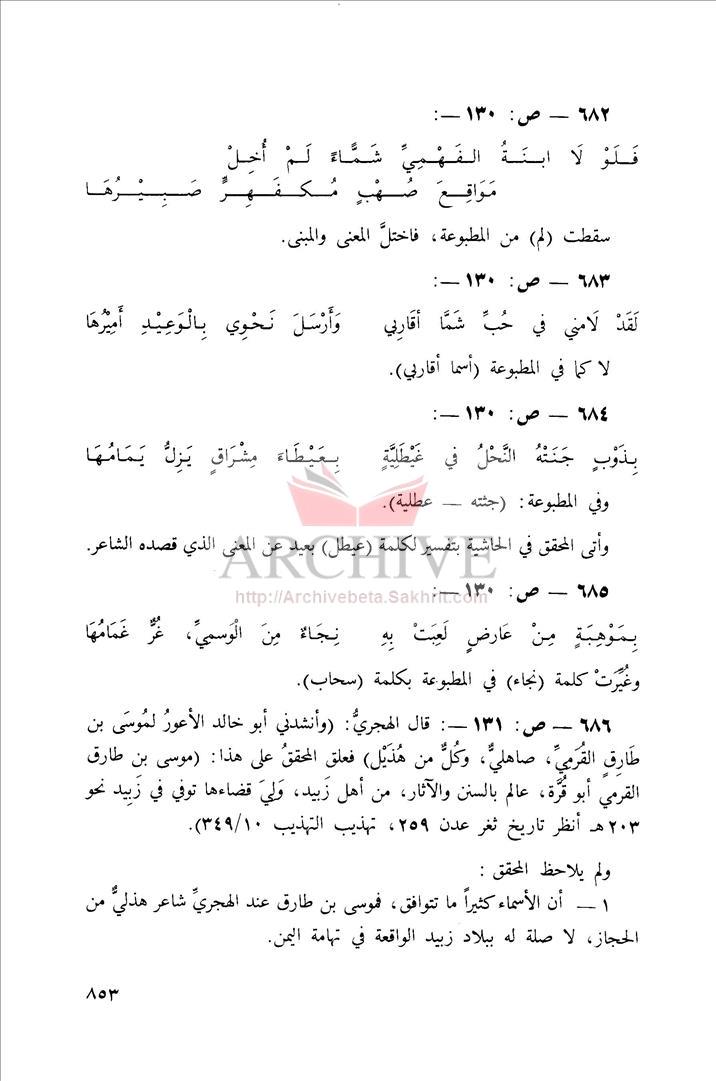 ٦٨٢ — ص: ١٣٠ —:
فَلَوْ لَا ابنَةُ الفَهْمِيِّ شَمَّاءً لَمْ أُخِلْ
مَوَاقِعَ صُهْبٍ مُكفَهِرٍّ صَبِيْرُهَا
سقطت (لم) من المطبوعة، فاختلَّ المعنى والمبنى.
٦٨٣ — ص: ١٣٠ —:
لَقَدْ لَامني في حُبِّ شَمَّا أقَارِبي وَأَرْسَلَ نَحْوِي بِالْوَعِيْدِ أَمِيْرُهَا
لا كما في المطبوعة (أسما أقاربي).
٦٨٤ — ص: ١٣٠ —:
بِذَوْبٍ جَنَتْهُ النَّحْلُ في غَيْطَلِيَّةٍ بِعَيْطَاءَ مِشْرَاقٍ يَزِلُّ يَمَامُهَا
وفي المطبوعة: (جثته — عطلية).
وأتى المحقق في الحاشية بتفسير لكلمة (عيطل) بعيد عن المعنى الذي قصده الشاعر.
ARCHIVE
http://Archivebeta.Sakhrit.com
٦٨٥ — ص: ١٣٠ —:
بِمَوْهِبَةٍ مِنْ عَارضٍ لَعِبَتْ بِهِ نِجَاءٌ مِنَ الْوَسميِّ، غُرٌّ غَمَامُهَا
وغُيِّرَتْ كلمة (نجاء) في المطبوعة بكلمة (سحاب).
٦٨٦ — ص: ١٣١ —: قال الهجريُّ: (وأنشدني أبو خالد الأعورُ لمُوسَى بن
طَارِقٍ القُرَمِيِّ، صاهليٌّ، وكُلٌّ من هُذَيْل) فعلق المحققُ على هذا: (موسى بن طارق
القرمي أبو قُرَّة، عالم بالسنن والآثار، من أهل زَبيد، وَلِيَ قضاءها توفي في زَبِيد نحو
٢٠٣ هـ أنظر تاريخ ثغر عدن ٢٥٩، تهذيب التهذيب ٣٤٩/١٠).
ولم يلاحظ المحقق :
١ — أن الأسماء كثيراً ما تتوافق، فموسى بن طارق عند الهجريِّ شاعر هذليٌّ من
الحجاز، لا صلة له ببلاد زبيد الواقعة في تهامة اليمن.
٨٥٣